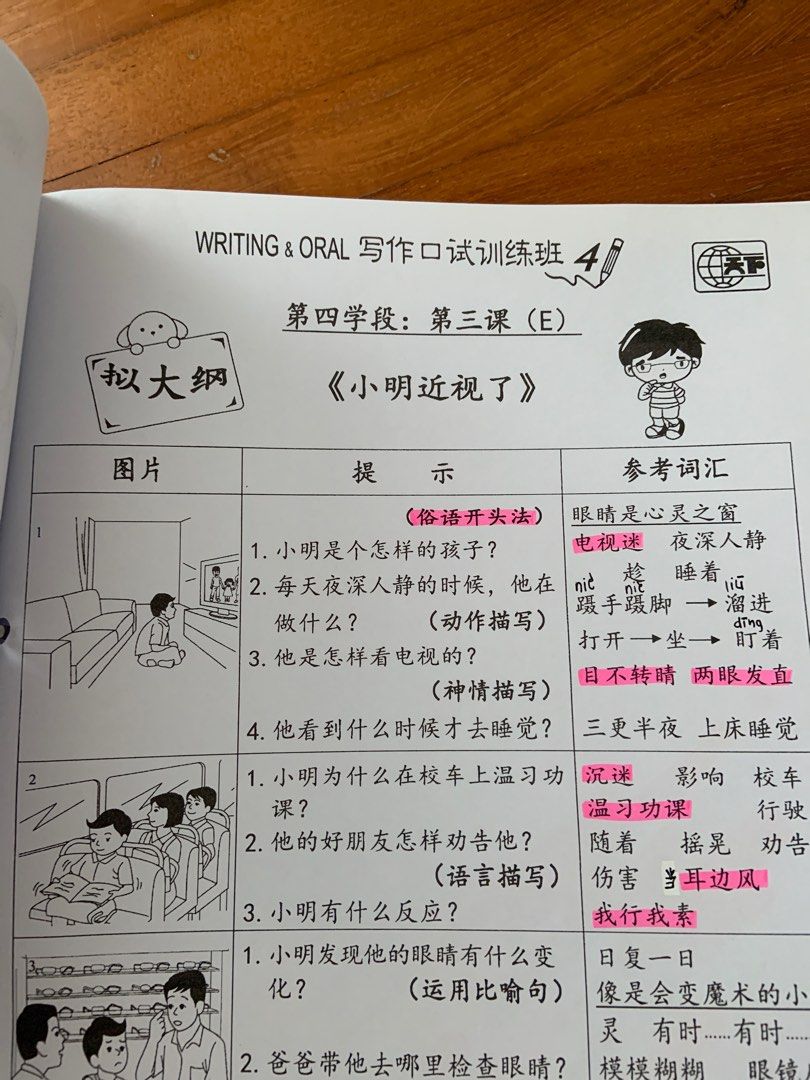 WRITING & ORAL 写作口试训练班 4
天下
第四学段：第三课（E）
拟大纲
《小明近视了》
图片
提 示
参考词汇
1
（俗语开头法）
1. 小明是个怎样的孩子？
2. 每天夜深人静的时候，他在
做什么？ （动作描写）
3. 他是怎样看电视的？
（神情描写）
4. 他看到什么时候才去睡觉？
眼睛是心灵之窗
电视迷 夜深人静
趁 睡着
niè niè liū
蹑手蹑脚 → 溜进
dīng
打开 → 坐 → 盯着
目不转睛 两眼发直
三更半夜 上床睡觉
2
1. 小明为什么在校车上温习功
课？
2. 他的好朋友怎样劝告他？
（语言描写）
3. 小明有什么反应？
沉迷 影响 校车
温习功课 行驶
随着 摇晃 劝告
伤害 当耳边风
我行我素
3
1. 小明发现他的眼睛有什么变
化？ （运用比喻句）
2. 爸爸带他去哪里检查眼睛？
日复一日
像是会变魔术的小
灵 有时……有时……
模模糊糊 眼镜